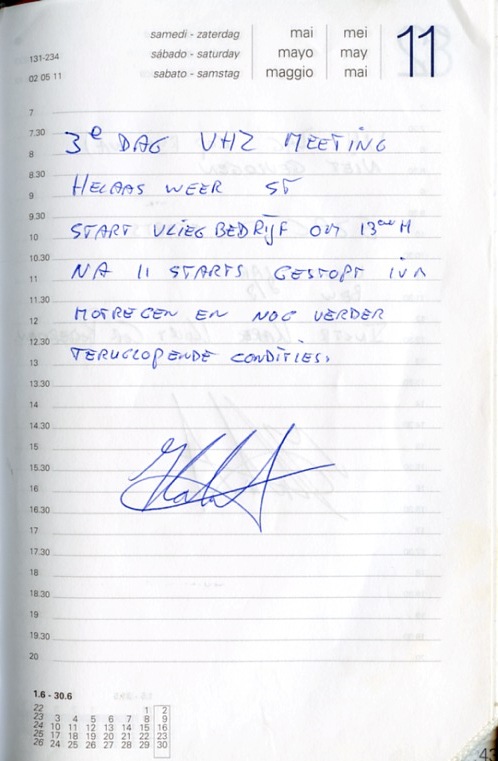 samedi - zaterdag mai mei 11
131-234 sábado - saturday mayo may
02 05 11 sabato - samstag maggio mai
7
7.30 3e DAG VHZ MEETING
8
8.30 HELAAS WEER ST
9
9.30 START VLIEGBEDRIJF OM 13 H
10
10.30 NA 11 STARTS GESTOPT IVM
11
11.30 MOTREGEN EN NOG VERDER
12
12.30 TERUGLOPENDE CONDITIES.
13
13.30
14
14.30
15
15.30
16
16.30
17
17.30
18
18.30
19
19.30
20
1.6 - 30.6
22 1 2
23 3 4 5 6 7 8 9
24 10 11 12 13 14 15 16
25 17 18 19 20 21 22 23
26 24 25 26 27 28 29 30